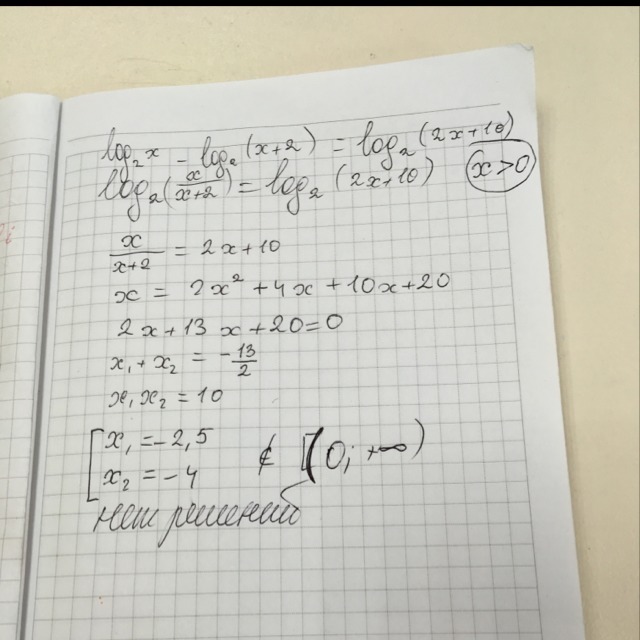 log₂x - log₂(x+2) = log₂(2x+10)
log₂(x/(x+2)) = log₂(2x+10) x>0
x/(x+2) = 2x+10
x = 2x² + 4x + 10x + 20
2x+13x+20=0
x₁+x₂ = -13/2
x₁x₂ = 10
[x₁ = -2,5
x₂ = -4 ∉ (0; +∞)
нет решений